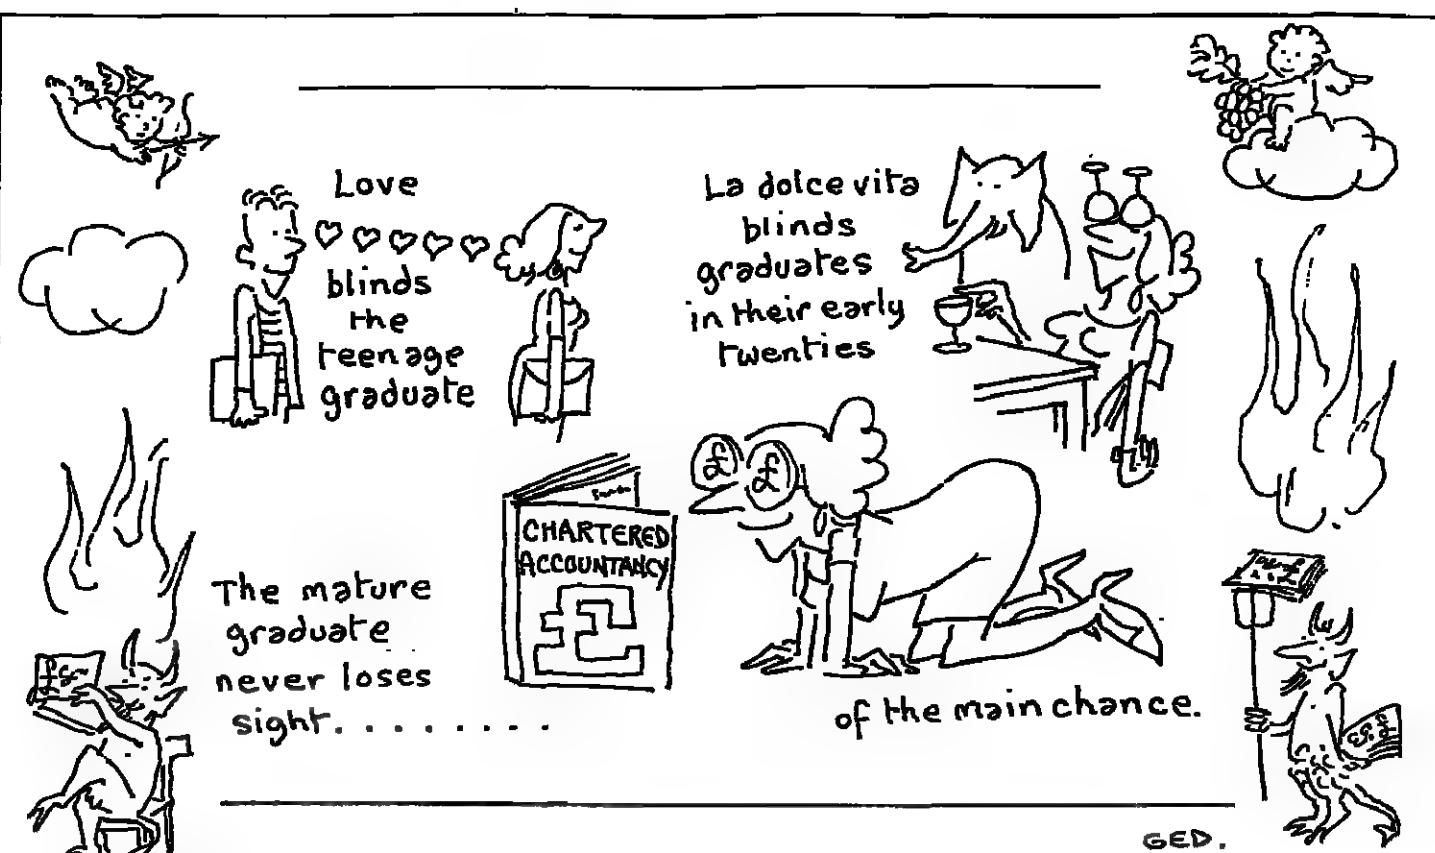 Love
blinds
the
teenage
graduate
La dolce vita
blinds
graduates
in their early
twenties
CHARTERED
ACCOUNTANCY
£
£ £
The mature
graduate
never loses
sight. . . . . . . .
of the main chance.
GED.